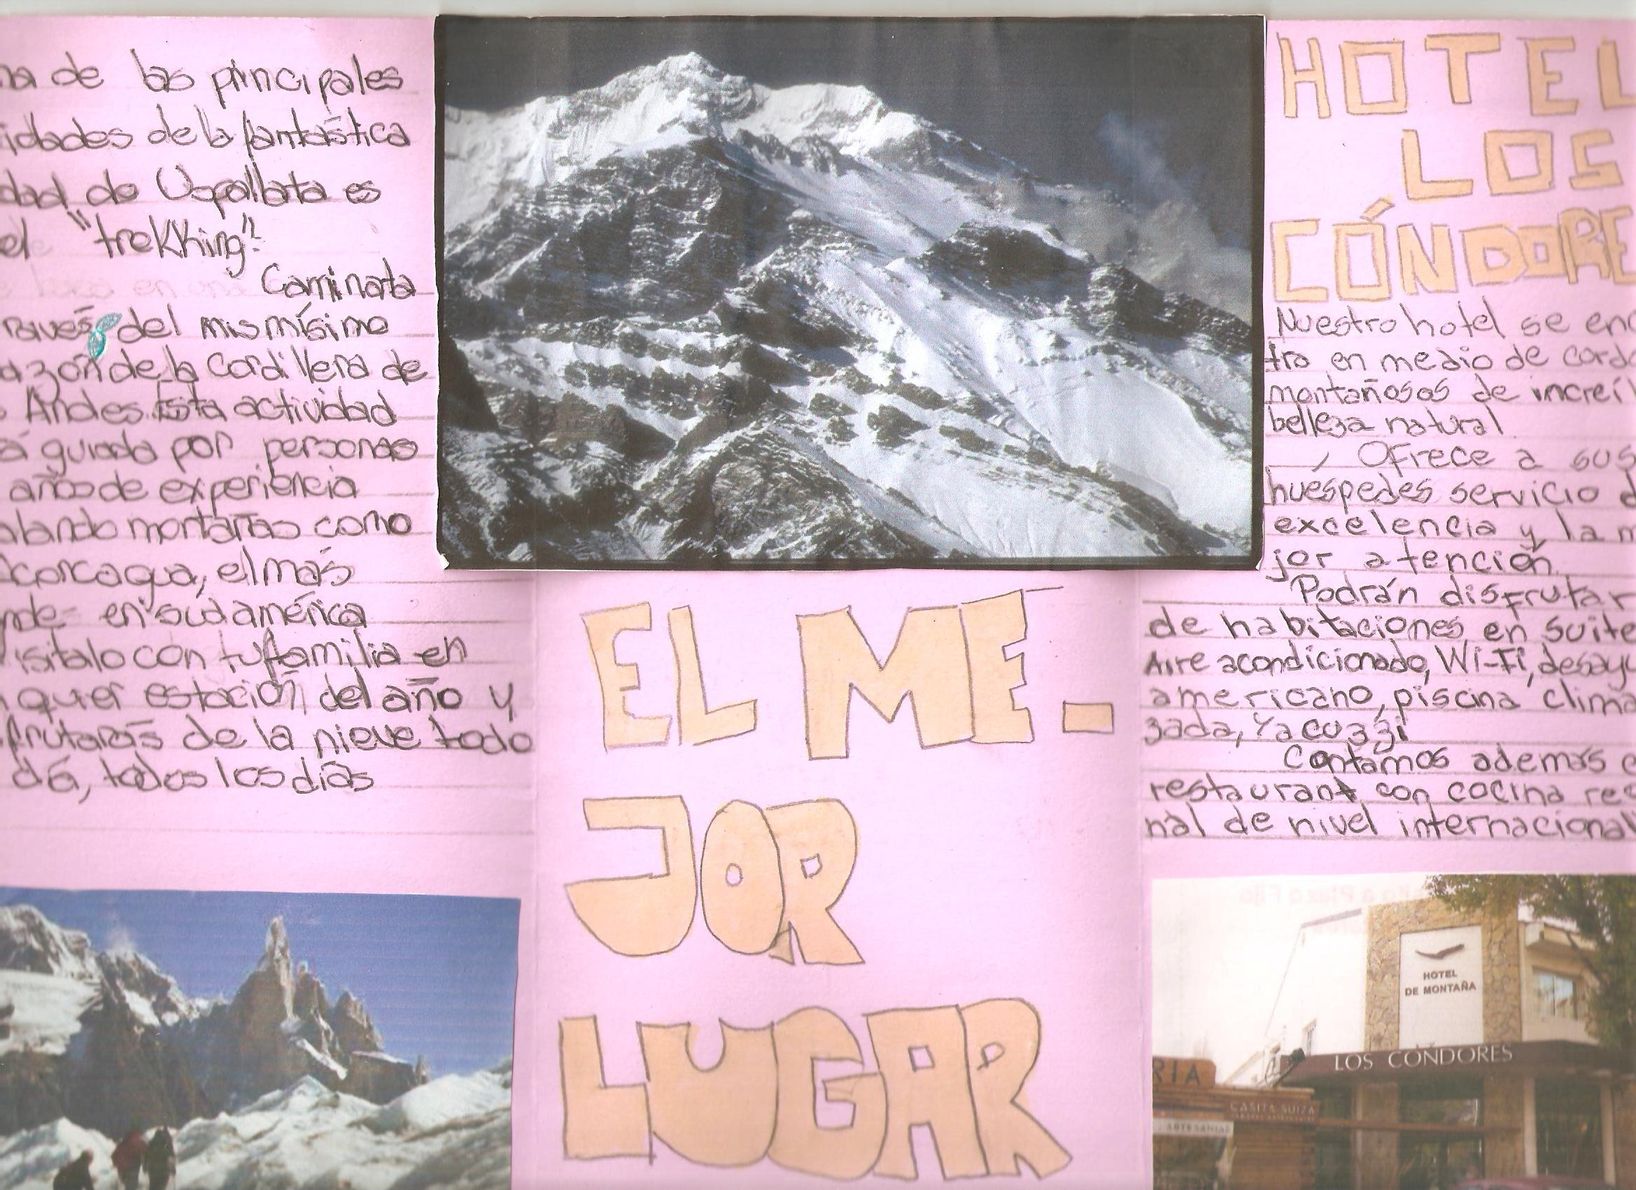 na de las principales
idades de la fantástica
dad de Uspallata es
el "trekking".
Caminata
raves del mismísimo
azón de la Cordillera de
s Andes. Esta actividad
á guiada por personas
años de experiencia
alando montañas como
concagua, el más
nde en sudamérica
isitalo con tu familia en
quier estación, del año y
frutarás de la nieve todo
dá, todos los días
EL ME-
JOR
LUGAR
HOTEL
LOS
CÓNDORE
Nuestro hotel se enc
tra en medio de cordo
montañosos de increí
belleza natural.
Ofrece a sus
huéspedes servicio d
excelencia y la m
jor atención.
Podrán disfrutar
de habitaciones en suite
Aire acondicionado, Wi-Fi, desayu
americano, piscina clima
zada, Yacuzzi
Contamos además c
restaurant con cocina reg
nal de nivel internacional
HOTEL
DE MONTAÑA
LOS CONDORES
RIA
CASITA SUIZA
ARTESANIAS